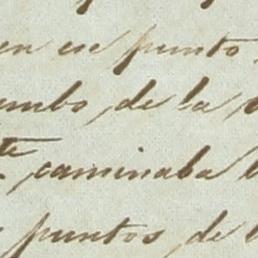 en ese punto
umbo, de la
te, caminaba
puntos, de